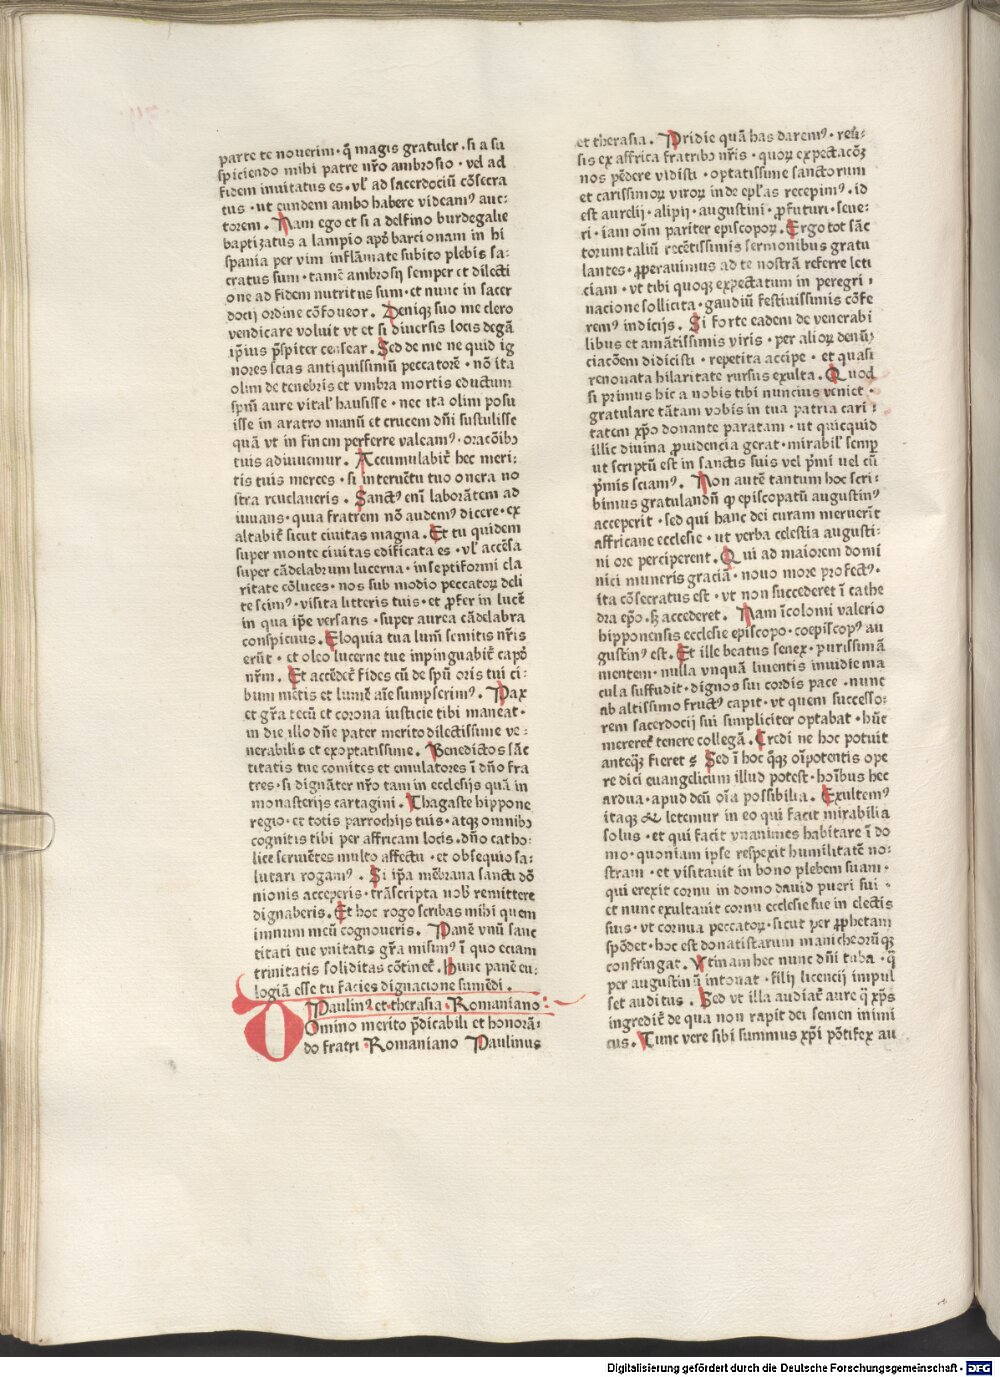 parte te nouerim · q̃ magis gratuler · si a su
spiciendo mihi patre nr̃o ambrosio · vel ad
fidem inuitatus es · vl̕ ad sacerdociũ cõsecra
tus · ut eundem ambo habere videamꝰ auc-
torem . Nam ego et si a delfino burdegalie
baptizatus a lampio apd̕ barcionam in hi
spania per vim inflãmate subito plebis sa-
cratus sum · tamẽ ambrosij semper et dilecti
one ad fidem nutritus sum · et nunc in sacer
docij ordine cõfoueor . Deniqꝫ suo me clero
vendicare voluit vt et si diuersis locis degã
ip̃ius p̃spiter censear . Sed de me ne quid ig
nores scias antiquissimũ peccatorẽ · nõ ita
olim de tenebris et vmbra mortis eductum
sp̃m aure vital̕ hausisse · nec ita olim posu
isse in aratro manũ et crucem dñi sustulisse
quã vt in finem perferre valeamꝰ · oracõibꝰ
tuis adiuuemur . Accumulabit̕ hec meri-
tis tuis merces · si interuẽtu tuo onera no
stra reuelaueris . Sanctꝰ enĩ laborãtem ad
iuuans · quia fratrem nõ audemꝰ dicere · ex
altabit̕ sicut ciuitas magna . Et tu quidem
super monte ciuitas edificata es · vl̕ accẽsa
super cãdelabrum lucerna · in septiformi cla
ritate cõluces · nos sub modio peccatoꝝ deli
tescimꝰ · visita litteris tuis · et ꝓfer in lucẽ
in qua ip̃e versaris · super aurea cãdelabra
conspicuus . Eloquia tua lumẽ semitis nr̃is
erũt · et oleo lucerne tue inpinguabit̕ capd̕
nr̃m . Et accẽdet̕ fides cũ de spũ oris tui ci-
bum mẽtis et lumẽ aĩe sumpserimꝰ . Pax
et gr̃a tecũ et corona iusticie tibi maneat ·
in die illo dñe pater merito dilectissime ve-
nerabilis et exoptatissime . Benedictos sãc
titatis tue comites et emulatores ĩ dño fra
tres · si dignãter nr̃o tam in ecclesijs quã in
monasterijs cartagini . Thagaste hippone
regio · et totis parrochijs tuis · atqꝫ omnibꝰ
cognitis tibi per affricam locis · dño catho-
lice seruiẽtes multo affectu · et obsequio sa-
lutari rogamꝰ . Si ip̃a mẽbrana sancti dõ
nionis acceperis · trãscripta nob̕ remittere
dignaberis . Et hoc rogo scribas mihi quem
imnum meũ cognoueris . Panẽ vnũ sanc
titati tue vnitatis gr̃a misimꝰ ĩ quo eciam
trinitatis soliditas cõtinet̕ . Hunc panẽ eu-
logiã esse tu facies dignacione sumẽdi .
Paulinꝰ et therasia Romaniano
Domino merito p̃dicabili et honorã-
do fratri Romaniano Paulinus
et therasia . Pridie quã has daremꝰ · reũ-
sis ex affrica fratribꝰ nr̃is · quoꝝ expectacõꝫ
nos pẽdere vidisti · optatissime sanctorum
et carissimoꝝ viroꝝ inde epl̕as recepimꝰ · id
est aurelij · alipij · augustini · ꝓfuturi · seue-
ri · iam oĩm pariter episcopoꝝ . Ergo tot sãc
torum taliũ recẽtissimis sermonibus gratu
lantes · ꝓperauimus ad te nostrã referre leti
ciam · vt tibi quoqꝫ expectatum in peregri-
nacione sollicita · gaudiũ festiuissimis cõfe
remꝰ indicijs . Si forte eadem de venerabi
libus et amãtissimis viris · per alioꝝ denũ-
ciacõem didicisti · repetita accipe · et quasi
renouata hilaritate rursus exulta . Quod
si primus hic a nobis tibi nuncius veniet ·
gratulare tãtam vobis in tua patria cari-
tatem xp̃o donante paratam · ut quicquid
illic diuina ꝓuidencia gerat · mirabil̕ semꝑ
ut scriptũ est in sanctis suis vel p̃mi uel cũ
p̃mis sciamꝰ . Non autẽ tantum hoc scri-
bimus gratulandũ ꝙ episcopatũ augustinꝰ
acceperit · sed qui hanc dei curam meruerĩt
affricane ecclesie · ut verba celestia augusti-
ni ore perciperent . Qui ad maiorem domi
nici muneris graciã · nouo more profectꝰ ·
ita cõsecratus est · vt non succederet ĩ cathe
dra ep̃o · sꝫ accederet . Nam ĩcolomi valerio
hipponensis ecclesie episcopo · coepiscopꝰ au
gustinꝰ est . Et ille beatus senex · purissimã
mentem · nulla vnquã liuentis inuidie ma
cula suffudit · dignos sui cordis pace · nunc
ab altissimo fructꝰ capit · vt quem successo-
rem sacerdocij sui simpliciter optabat · hũc
mereret̕ tenere collegã . Credi ne hoc potuit
anteqꝫ fieret ꝭ Sed ĩ hoc q̃qꝫ oĩpotentis ope
re dici euangelicum illud potest · hoĩbus hec
ardua · apud deũ oĩa possibilia . Exultemꝰ
itaqꝫ & letemur in eo qui facit mirabilia
solus · et qui facit vnanimes habitare ĩ do
mo · quoniam ipse respexit humilitatẽ no-
stram · et visitauit in bono plebem suam ·
qui erexit cornu in domo dauid pueri sui ·
et nunc exultauit cornu ecclesie sue in electis
suis · vt cornua peccatoꝝ · sicut per ꝓphetam
spõdet · hoc est donatistarum manicheorũqꝫ
confringat . Vtinam hec nunc dñi tuba · q̃
per augustinũ intonat · filij licencij impul
set auditus . Sed vt illa audiat̕ aure q̃ xp̃s
ingredit̕ de qua non rapit dei semen inimi
cus . Tunc vere sibi summus xp̃i põtifex au
Digitalisierung gefördert durch die Deutsche Forschungsgemeinschaft - DFG